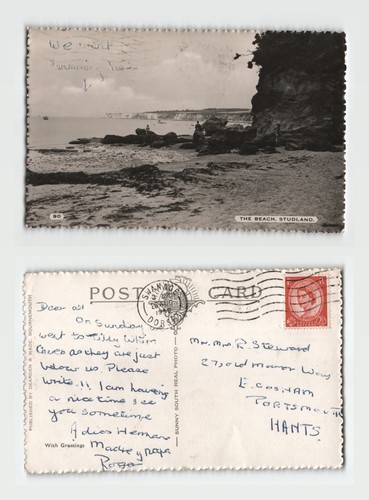 We went
swimming here
90
THE BEACH, STUDLAND.
POST CARD
SWANAGE
DORSET
PUBLISHED BY DEARDEN & WADE, BOURNEMOUTH
SUNNY SOUTH REAL PHOTO
With Greetings
Dear all
On Sunday
went to Tilly Whim
Caves as they are just
below us. Please
write!! I am having
a nice time see
you sometime
Adios Hermano
Roger
Mr. Mrs R. Steward
27, Old Manor Way
E. COSHAM
PORTSMOUTH
HANTS.